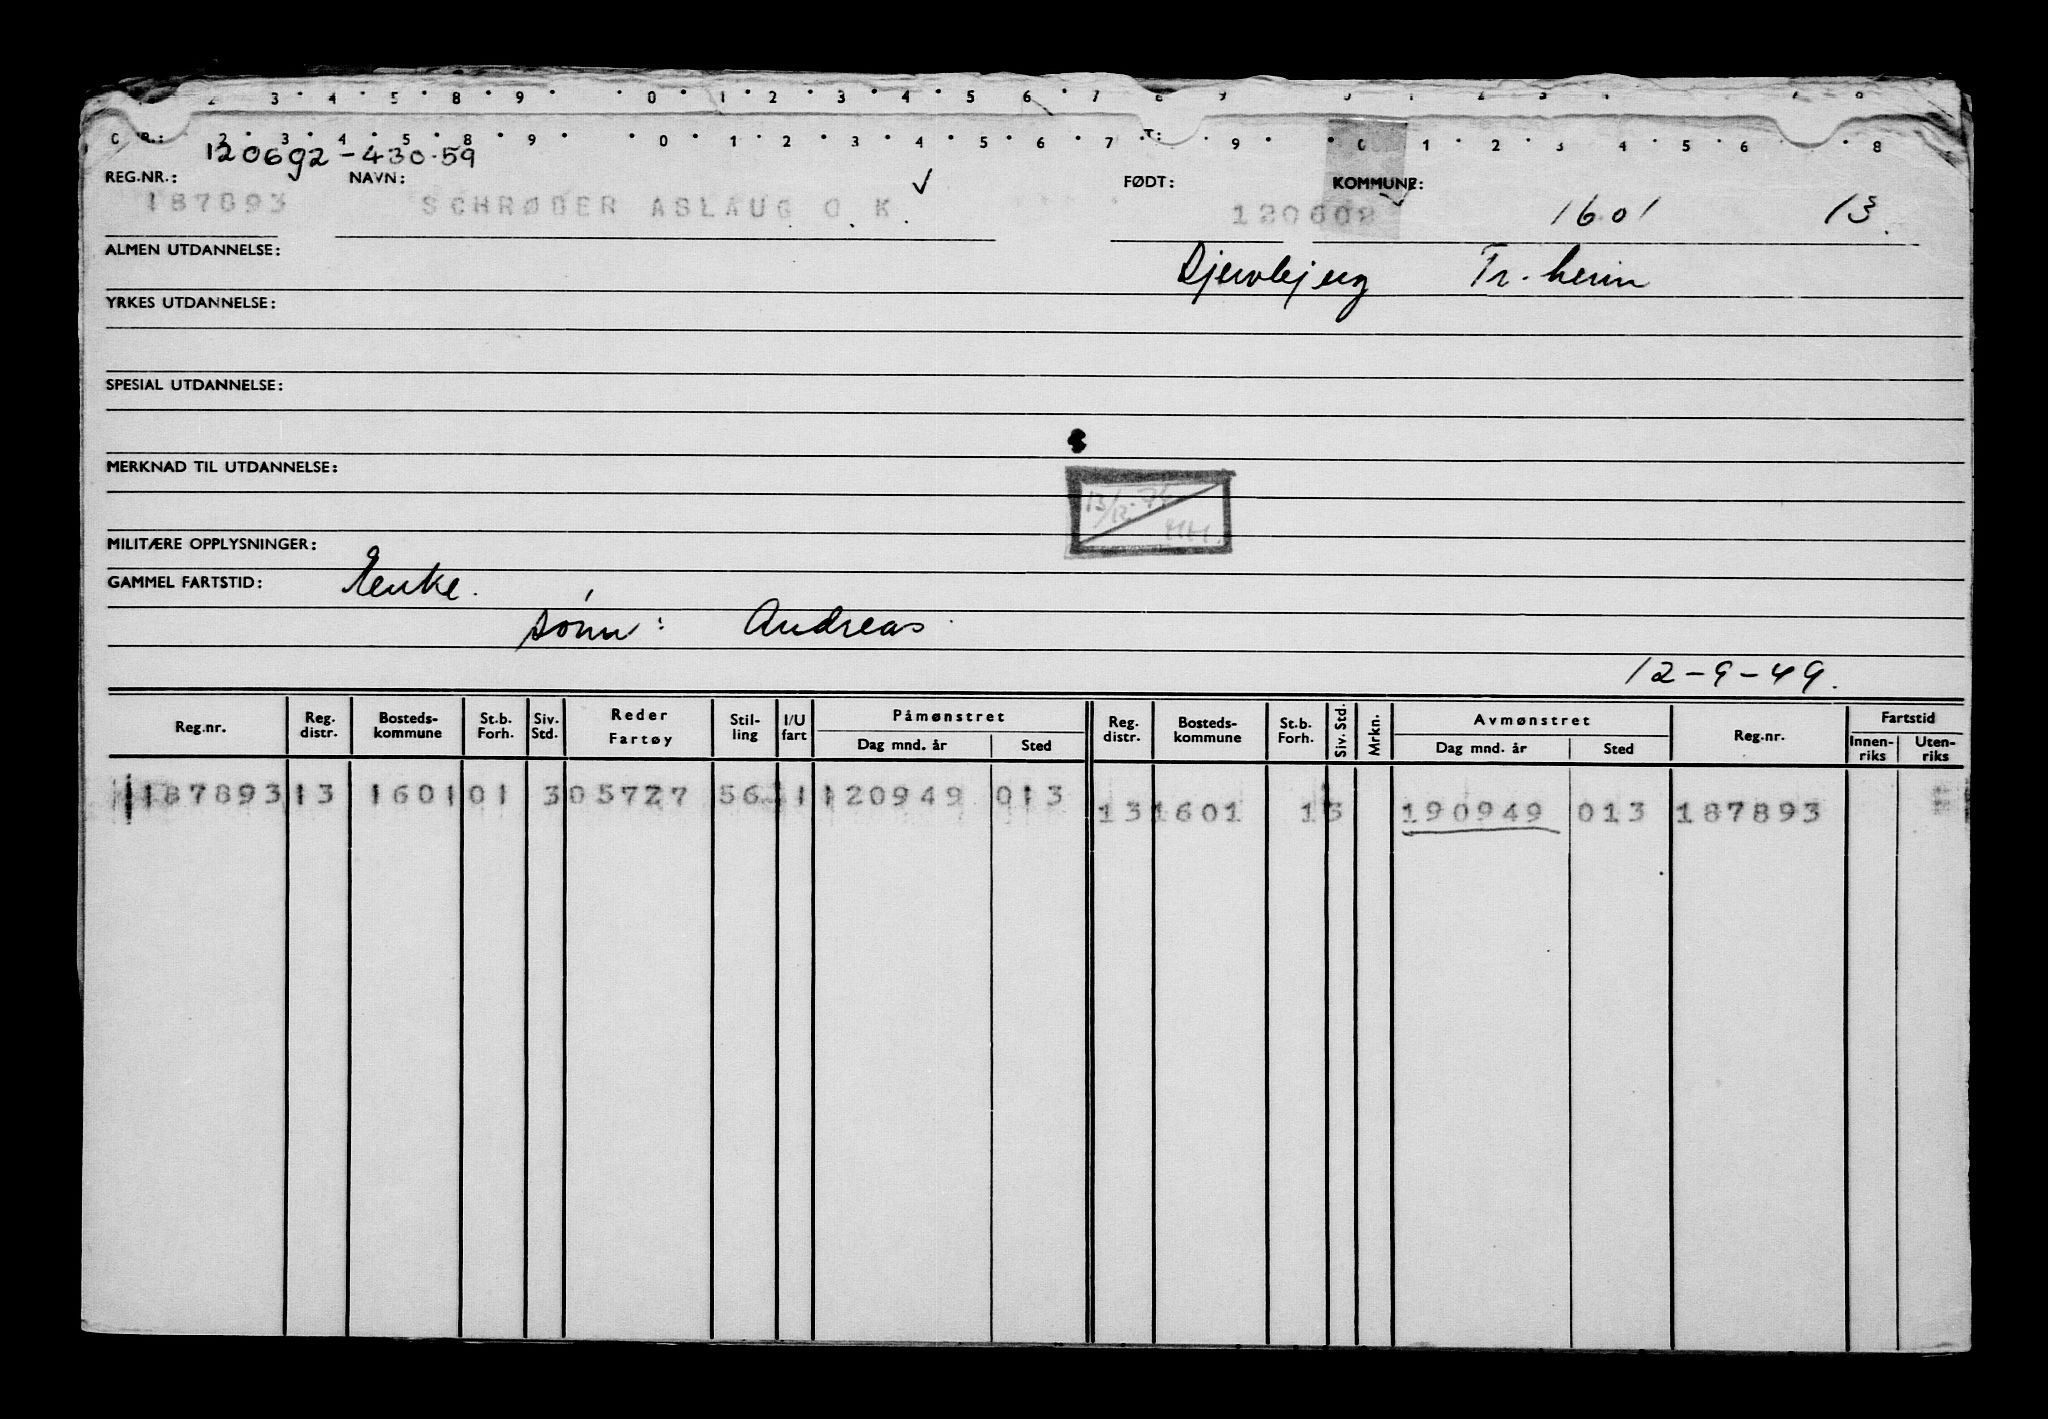 2 3 4 5 8 9 0 1 2 3 4 5 6 7 8 9
2 3 4 5 8 9 0 1 2 3 4 5 6 7 T: 9 0 1 2 3 4 5 6 8
120692-430.59
REG.NR.: NAVN: FØDT: KOMMUNE:
187893 SCHRØDER ASLAUG O K. 1601 13
ALMEN UTDANNELSE: Tr.heim
YRKES UTDANNELSE:
SPESIAL UTDANNELSE:
MERKNAD TIL UTDANNELSE:
13/12-74
HH.
MILITÆRE OPPLYSNINGER:
GAMMEL FARTSTID: Enke.
sønn: Andreas
12-9-49.
Reg.nr. Reg. distr. Bosteds-kommune St.b. Forh. Siv. Std. Reder Fartøy Stil-ling I/U fart Påmønstret Dag mnd. år Sted Reg. distr. Bosteds-kommune St.b. Forh. Siv. Std. Mrkn. Avmønstret Dag mnd. år Sted Reg.nr. Fartstid Innen-riks Uten-riks
187893 13 1601 01 3 05727 563 1 120949 013 13 1601 13 190949 013 187893